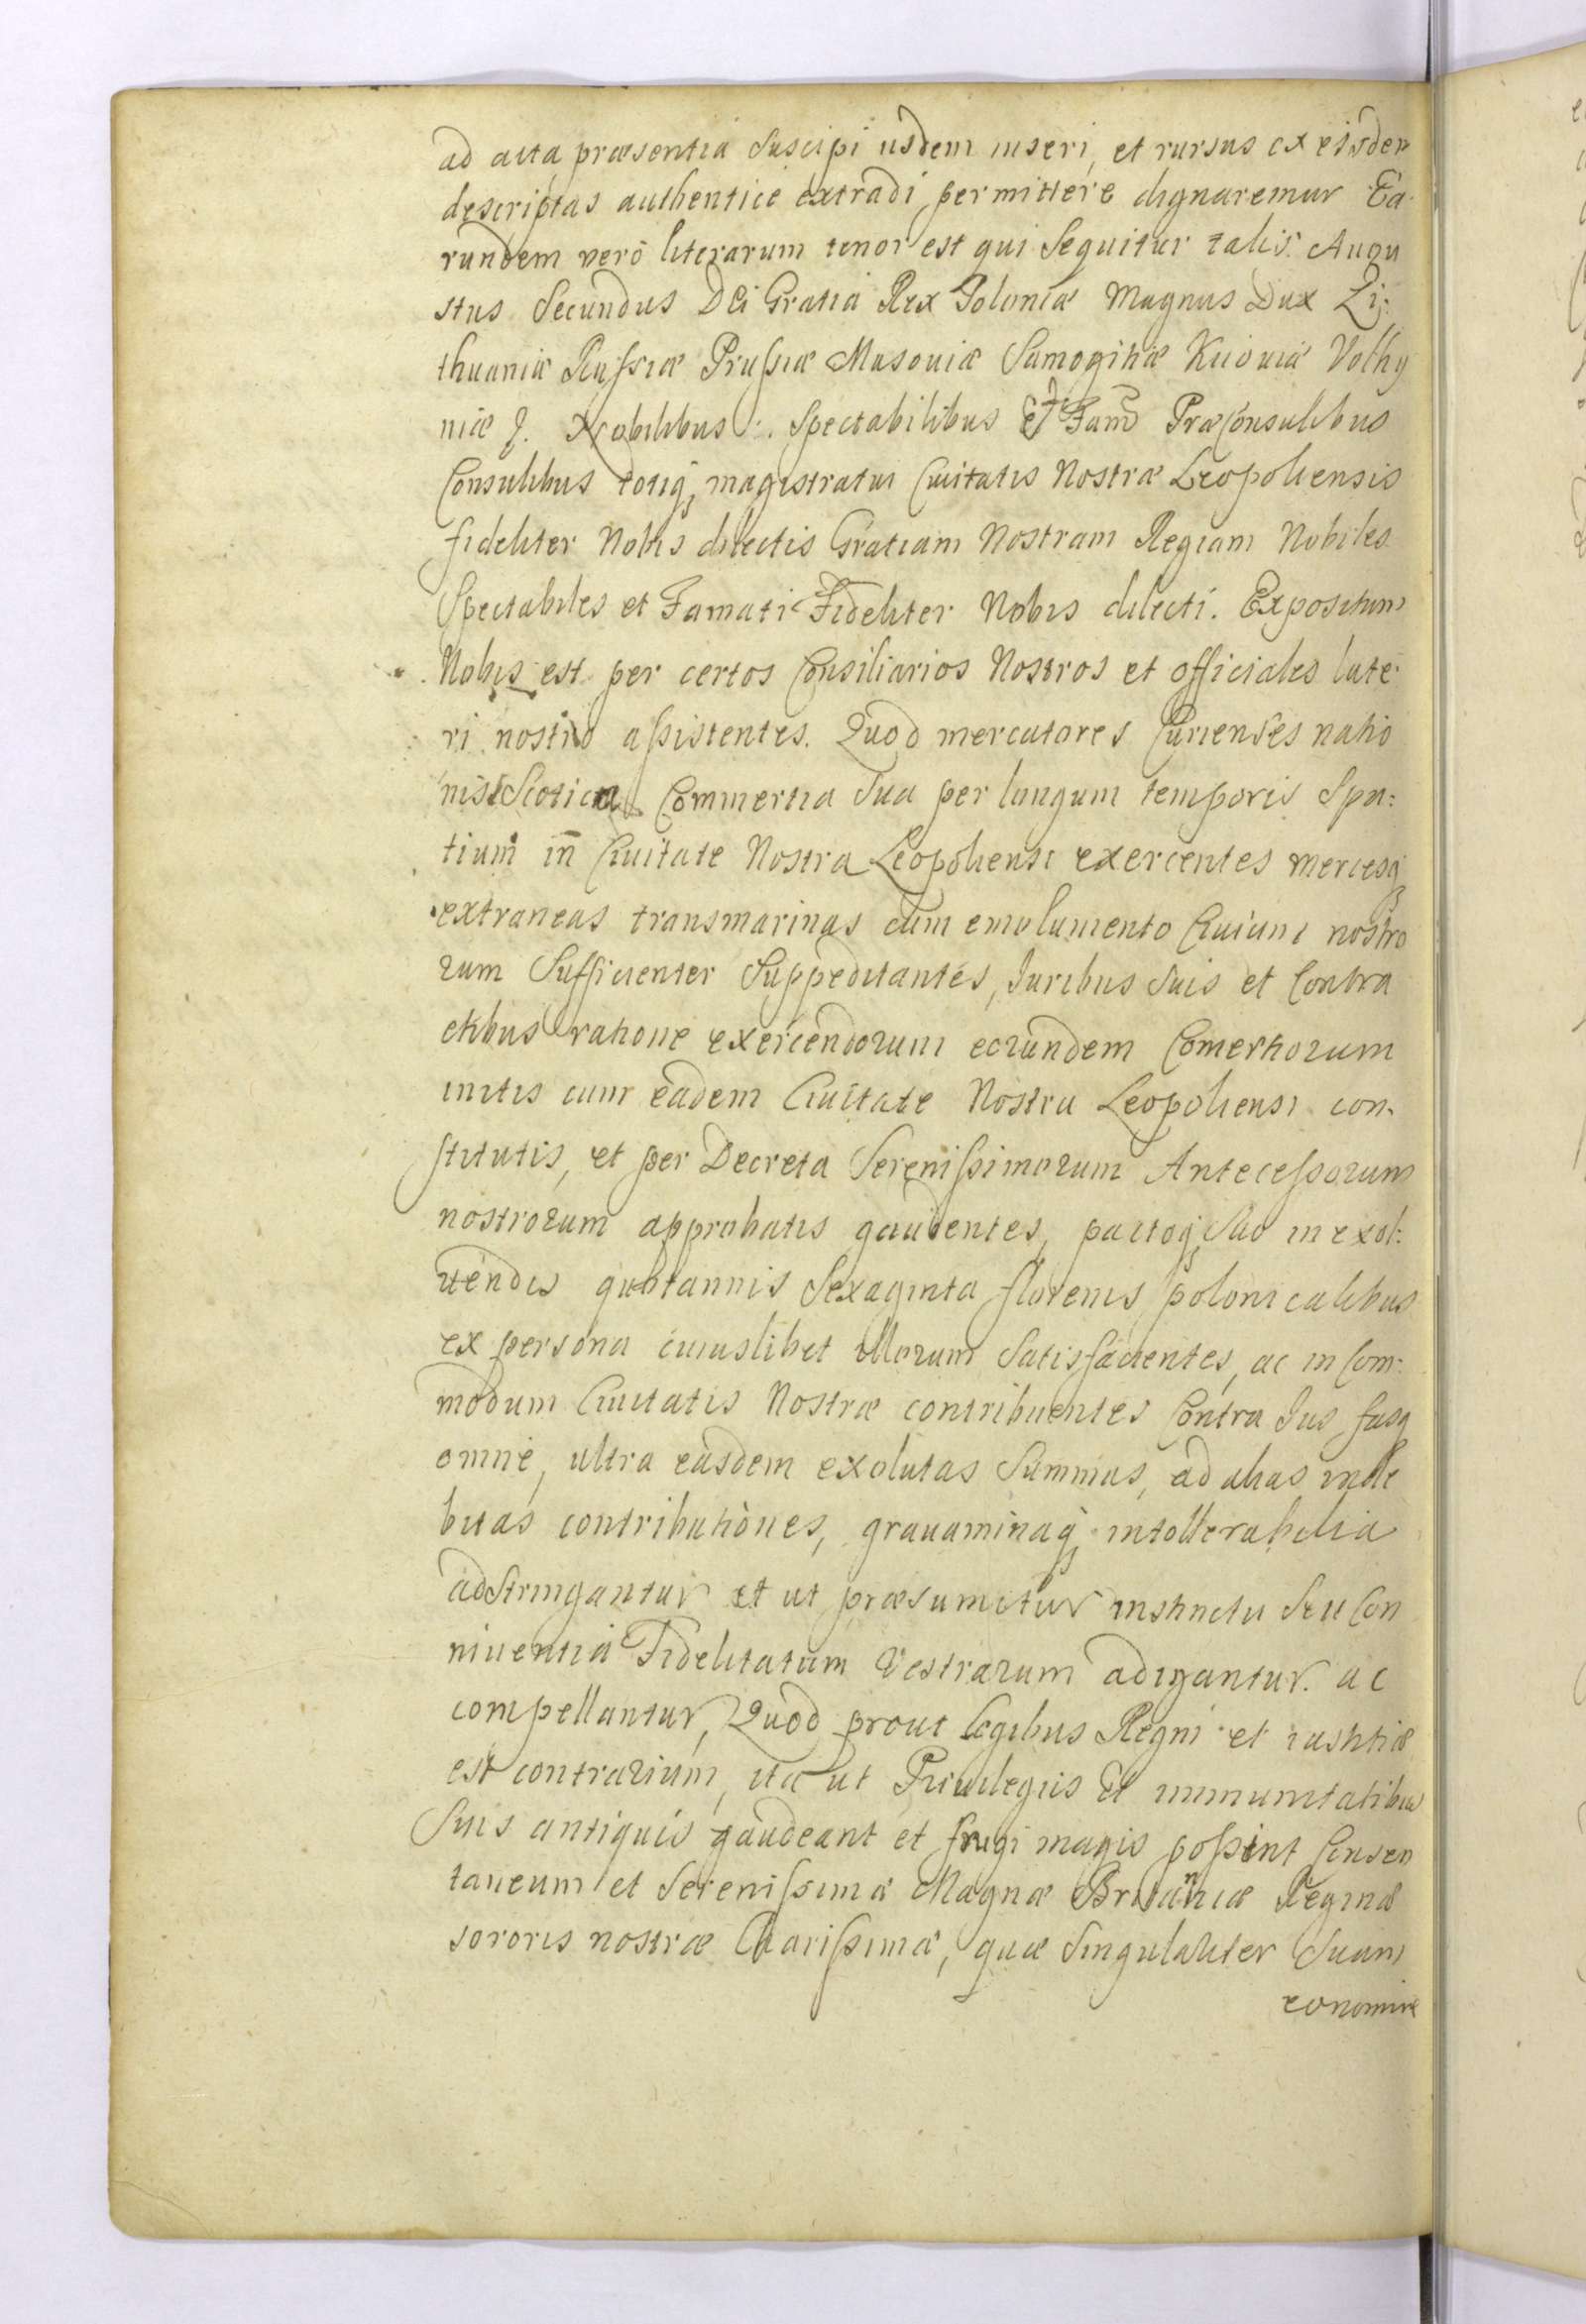 ad acta præsentia Suscipi iisdem inseri, et rursus ex eisdem
descriptas authentice extradi permittere dignaremur Ea
rundem verò literarum tenor est qui Sequitur talis. Augu
stus Secundus Dei Gratia Rex Poloniæ Magnus Dux Li:
thuaniæ Russiæ Prussiæ Masoviæ Samogitiæ Kiioviæ Volhy
niæ &. Nobilibus. Spectabilibus et Fam PræConsulibus
Consulibus totiq magistratui Civitatis Nostræ Leopoliensis
fideliter Nobis dilectis Gratiam Nostram Regiam Nobiles
Spectabiles et Famati Fideliter Nobis dilecti. Expositum
Nobis est per certos Consiliarios Nostros et officiales late
ri nostro assistentes. Quod mercatores Curienses natio
nis Scoticæ Commertia Sua per longum temporis Spa:
tium in Civitate Nostra Leopoliensi exercentes mercesq
extraneas transmarinas cum emolumento Civium nostro
rum Sufficienter Suppeditantes, Juribus Suis et Contra
ctibus ratione exercendorum eorundem Comertiorum
initis cum eadem Civitate Nostra Leopoliensi con-
stitutis, et per Decreta Serenissimorum Antecessorum
nostrorum approbatis gaudentes, pactoq Suo in exol:
vendis quotannis Sexaginta florenis polonicalibus
ex persona cuiuslibet illorum Satisfacientes, ac in Com:
modum Civitatis Nostræ contribuentes Contra Jus fasq
omne, ultra easdem exolutas Summas, ad alias inde
bitas contributiones, gravaminaq intollerabilia
adstringantur et ut præsumitur instinctu Seu Con
niventia Fidelitatum Vestrarum adigantur. ac
compellantur, Quod prout legibus Regni et iustitiæ
est contrarium, ita ut Privilegiis et immunitatibus
Suis antiquis gaudeant et frugi magis possint Consen
taneum et Serenissimæ Magnæ Britanniæ Reginæ
sororis nostræ Charissimæ, quæ Singulariter Suam
eo nomine